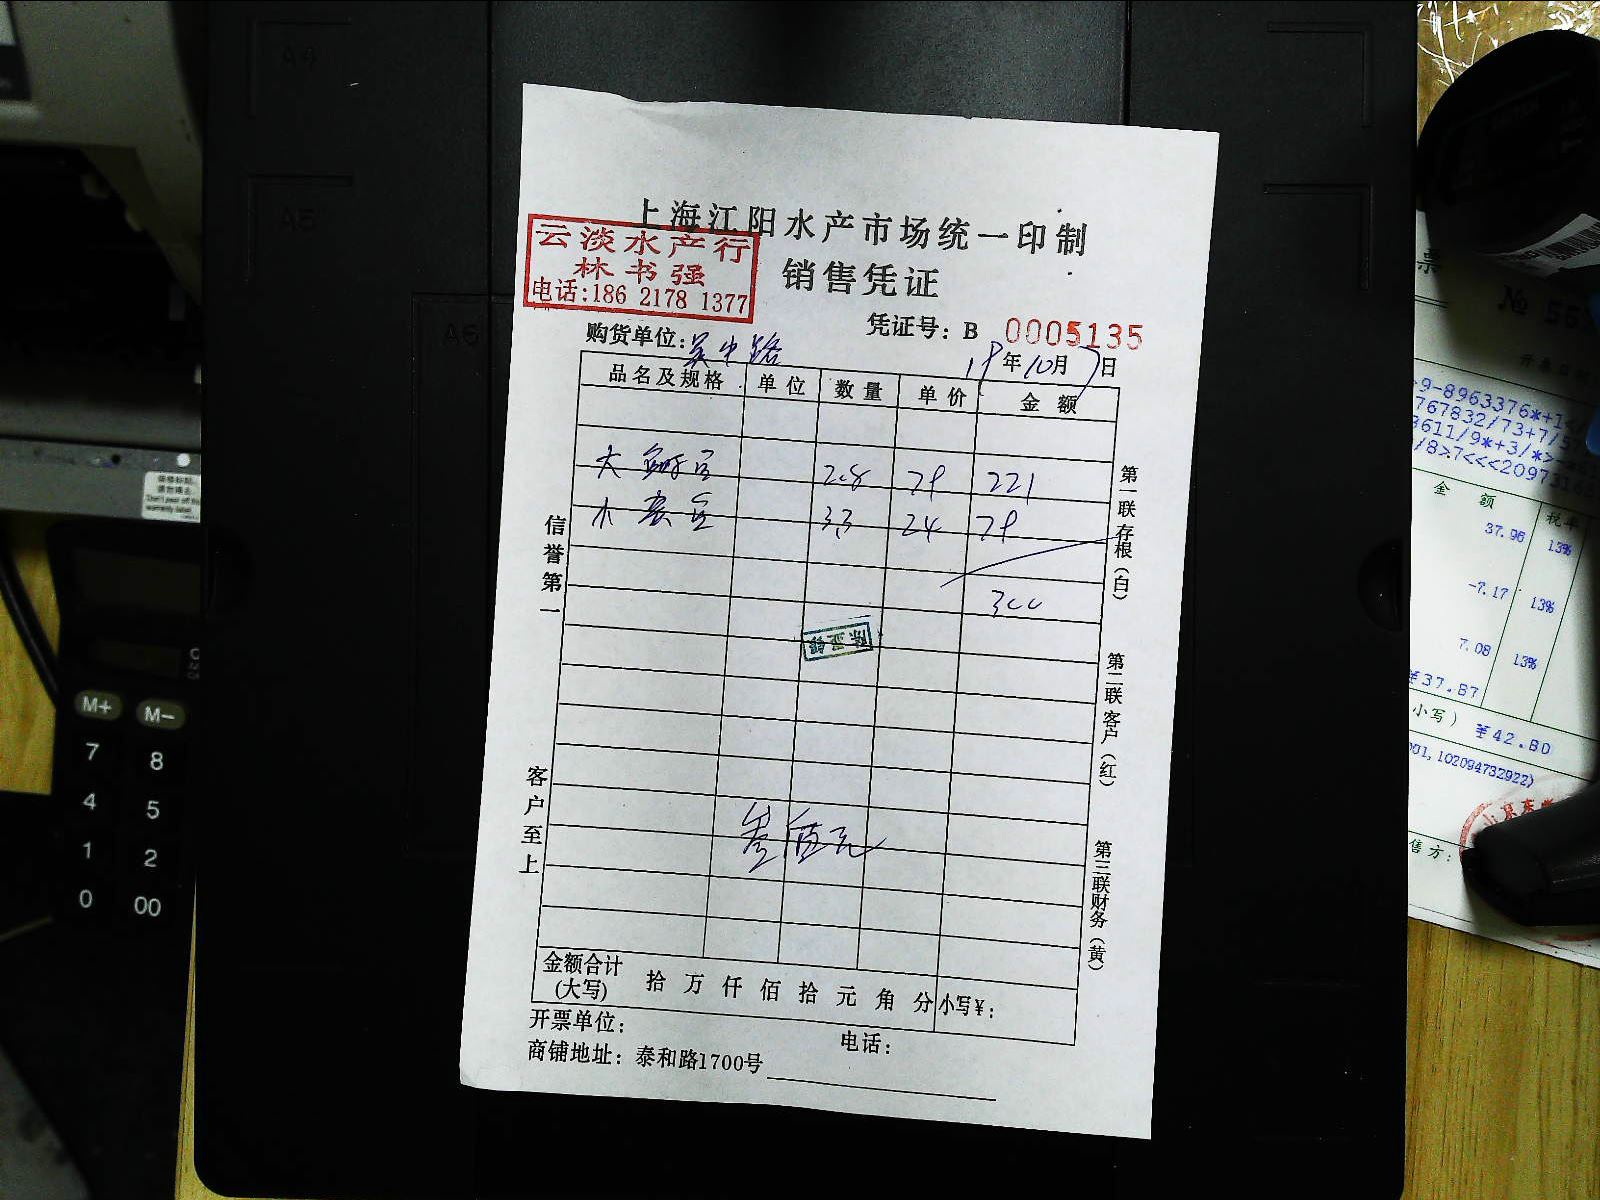 上海江阳水产市场统一印制
云淡水产行
林书强
电话:186 2178 1377
销售凭证
凭证号: B 0005135
购货单位:吴中路
19年10月7日
品名及规格 单位 数量 单价 金额
大 2.8 79 221
小 3.3 24 79
300
叁佰元
信誉第一
客户至上
第一联存根(白)
第二联客户(红)
第三联财务(黄)
金额合计
(大写)
拾 万 仟 佰 拾 元 角 分 小写¥:
开票单位:
电话:
商铺地址: 泰和路1700号
A4
A5
A6
M+ M-
7 8
4 5
1 2
0 00
票
№ 55
9-8963376*+1<
767832/73+7/5
3611/9*+3/*>
/8>7<<<2097316
金 额
税率
37.96 13%
-7.17 13%
7.08 13%
¥37.87
小写) ¥42.80
001,102094732922)
售方: